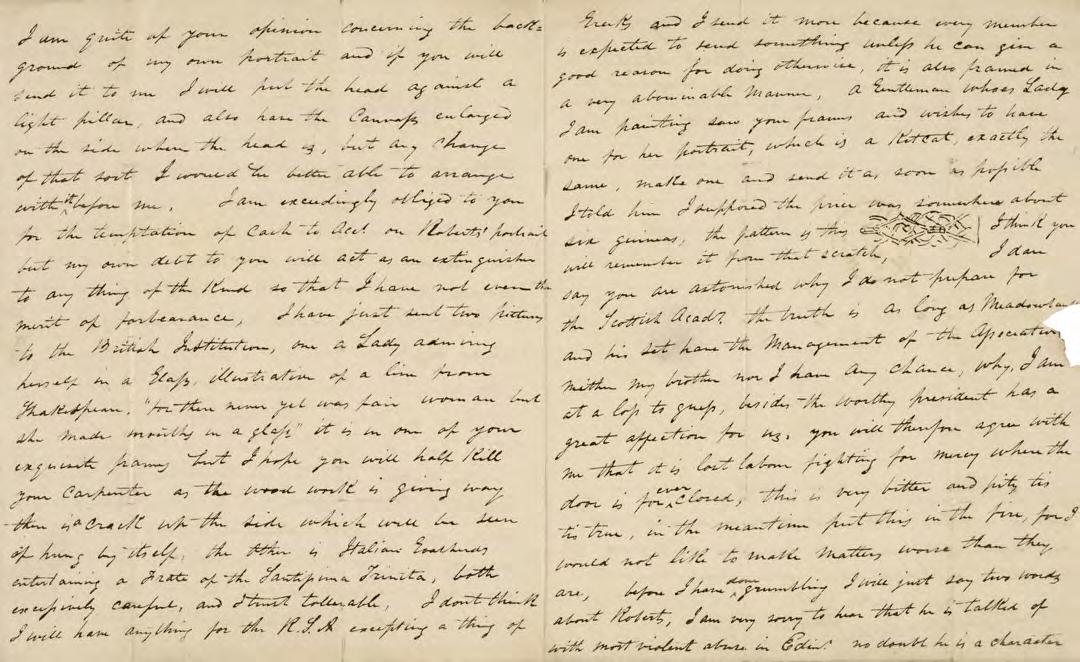 I am quite of your opinion concerning the back=
ground of my own portrait and if you will
send it to me I will put the head against a
light pillar, and also have the Canvass enlarged
on the side where the head is, but any change
of that sort I would be better able to arrange
with it before me. I am exceedingly obliged to you
for the temptation of Cash to Acc! on Roberts' portrait
but my own debt to you will act as an extinguisher
to any thing of the kind so that I have not even the
merit of forbearance, I have just sent two pictures
to the British Institution, one a Lady admiring
herself in a Glass, illustrative of a line from
Shakespear, "for there never yet was fair woman but
she made mouths in a glass" it is in one of your
exquisite frames but I hope you will half kill
your Carpenter as the wood work is giving way
there is a crack up the side which will be seen
if hung by itself, the other is Italian Goatherds
entertaining a Frate of the Santissima Trinita, both
excessively careful, and I trust tollerable, I dont think
I will have anything for the R.S.A excepting a thing of
Greeks and I send it more because every member
is expected to send something unless he can give a
good reason for doing otherwise, it is also framed in
a very abominable manner, A Gentleman whose Lady
I am painting saw your frames and wishes to have
one for her portrait, which is a Kitcat, exactly the
same, make one and send it as soon as possible
I told him I supposed the price was somewhere about
six guineas, the pattern is this I think you
will remember it from that scratch, I dare
say you are astonished why I do not prepare for
the Scottish Acad? the truth is as long as
and his set have the Management of the Association
neither my brother nor I have any chance, why, I am
at a loss to guess, besides the worthy president has a
great affection for us, you will therefore agree with
me that it is lost labour fighting for mercy where the
door is for ever closed, this is very bitter and pity tis
tis true, in the meantime put this in the fire, for I
would not like to make matters worse than they
are, before I have done grumbling I will just say two words
about Roberts, I am very sorry to hear that he is talked of
with most violent abuse in Edin! no doubt he is a character